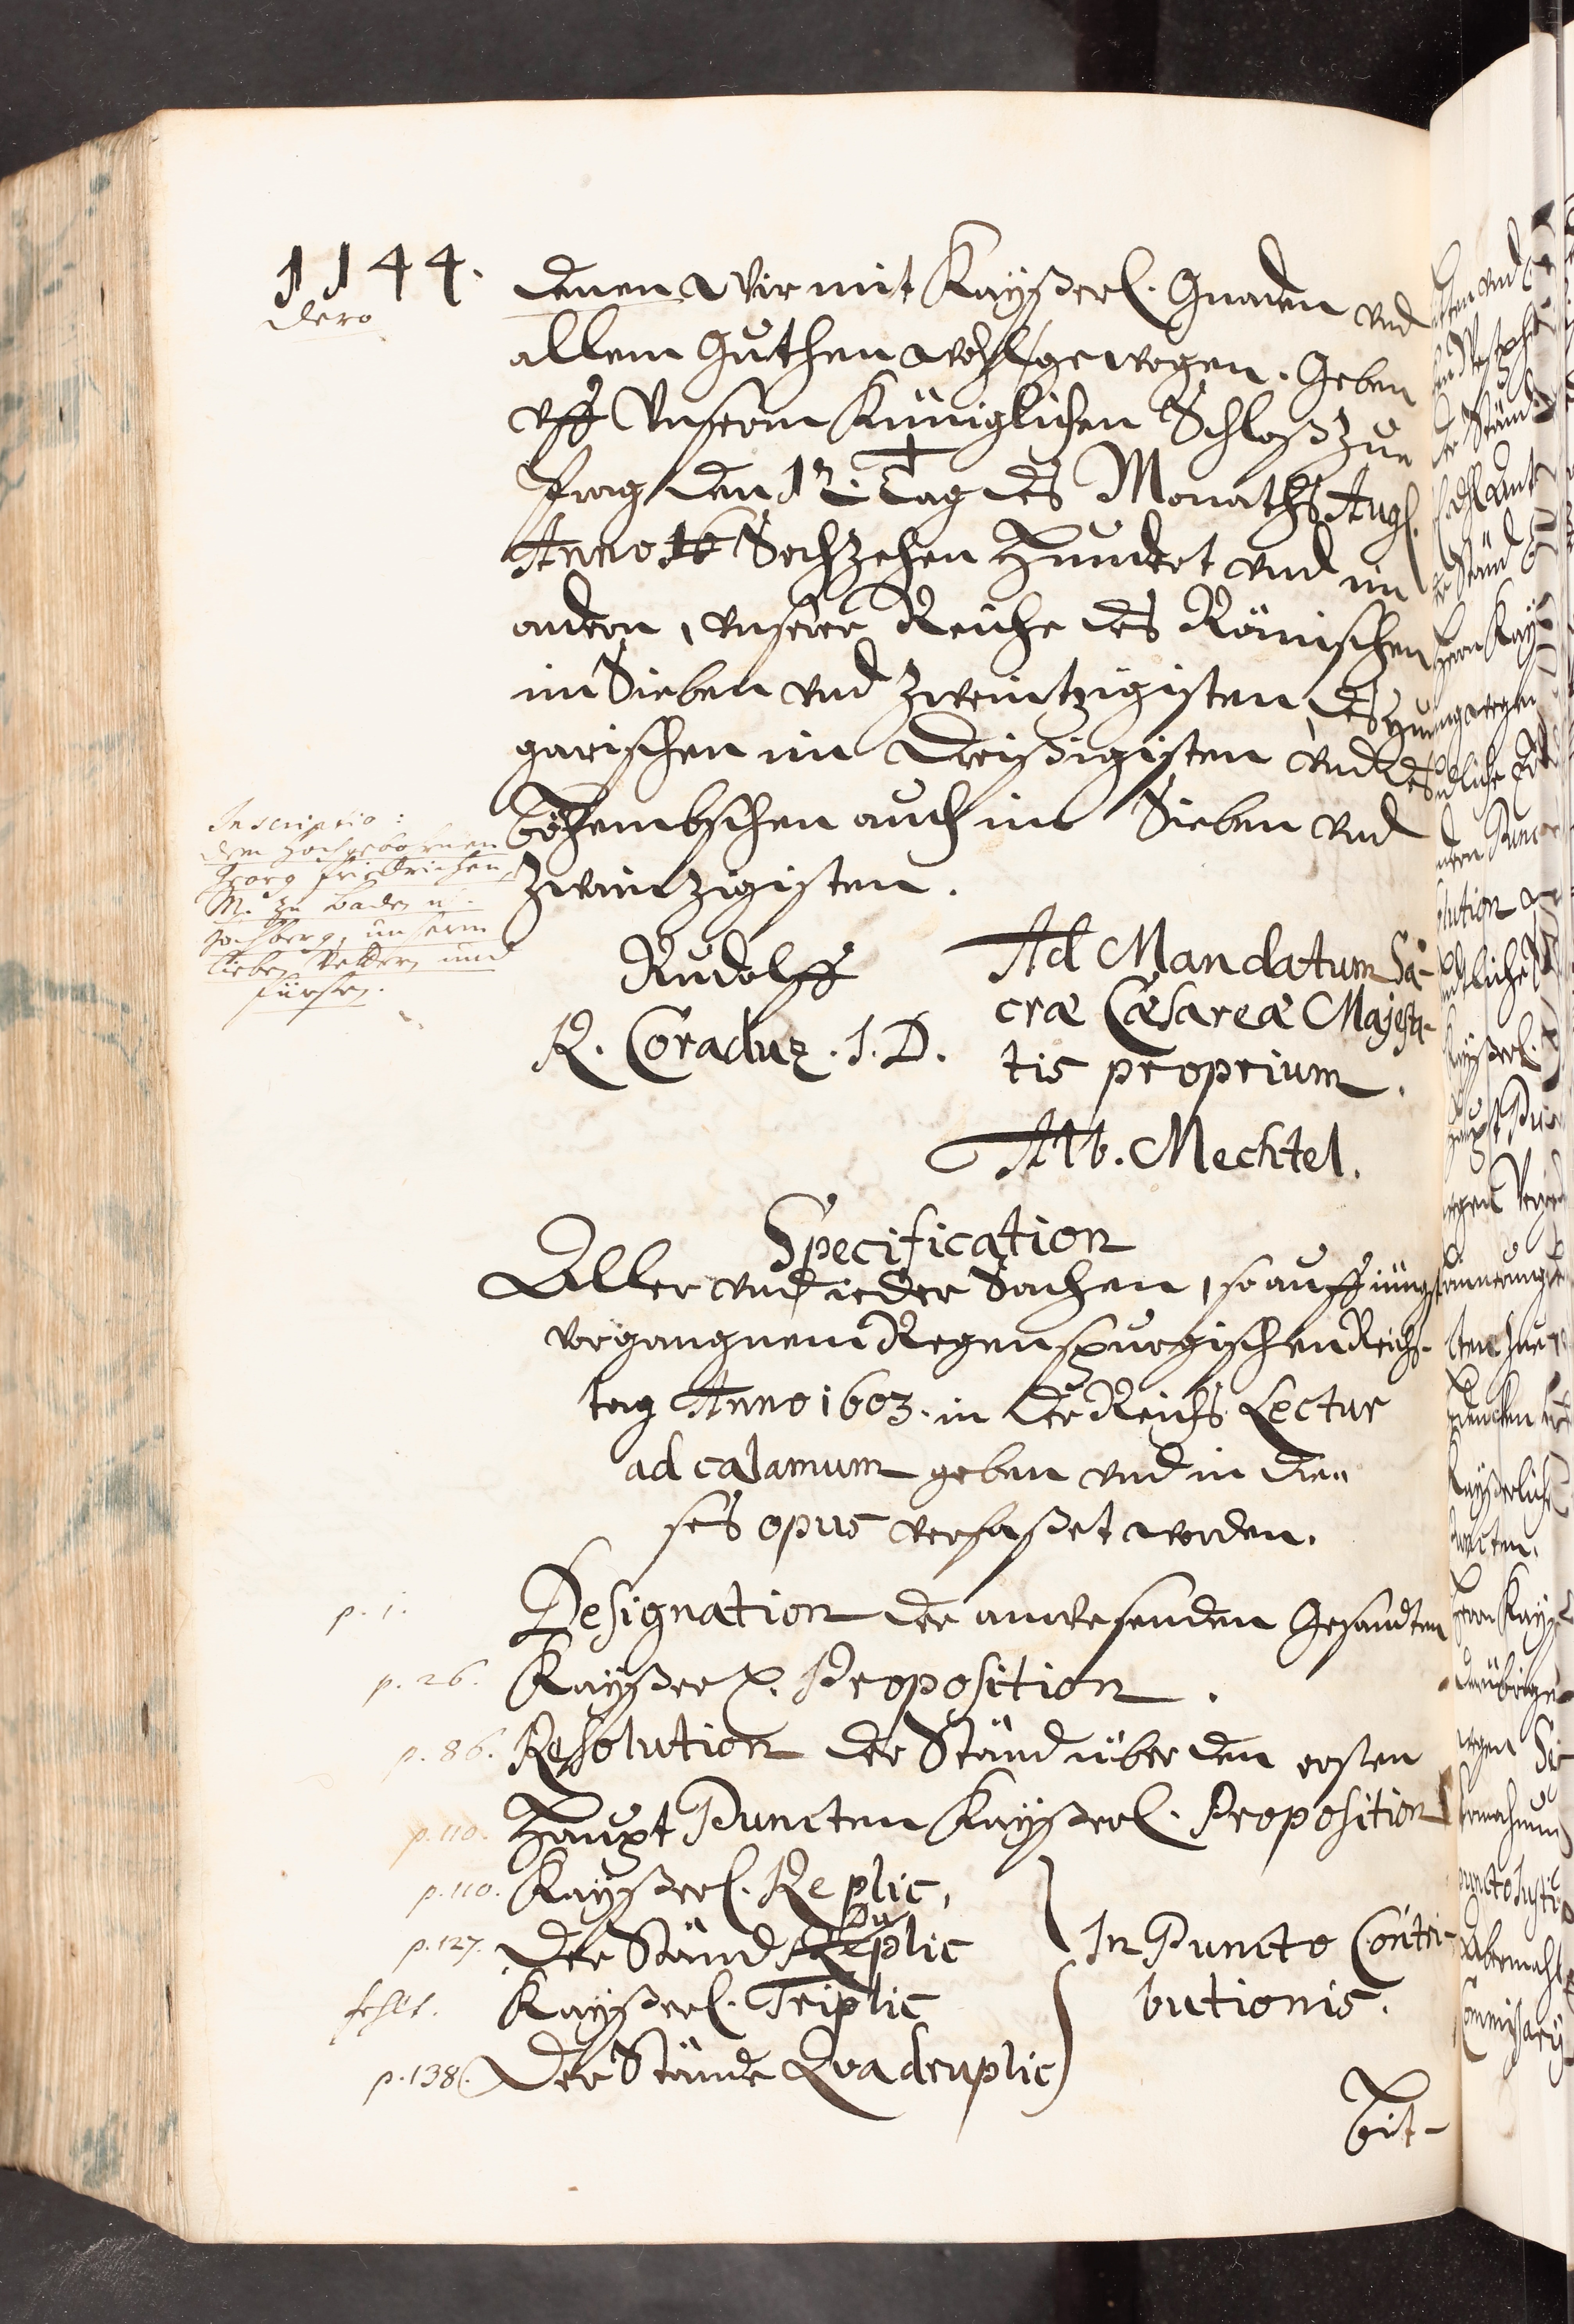 1144.
dero
denen wir mit Kayßerl. Gnaden vnd
allem Guthen wohl gewogen. Geben
vff Vnserm Königlichen Schloß zue
Prag den 12. Tag des Monaths Aug.
Anno 16 Sechzehen Hundert vnd im
andern, vnserer Reiche des Römischen
im Sieben vnd zweintzigisten, des Hun
garischen im Dreißigisten vnd des
Böhembschen auch im Sieben vnd
zweintzigisten.
Inscriptio:
dem hochgebornen
Georg Friedrichen
M. zu Baden u.
Hochberg, unserm
lieben Vettern und
fürsten.
Rudolff
R. Coraduz. I. D.
Ad Mandatum Sa-
cræ Cæsareæ Majesta-
tis proprium.
Alb. Mechtel.
Specification
Aller vnd ieder Sachen, so auff iüngst
vergangnem Regenspurgischen Reichs-
tag Anno 1603. in der Reichs Lectur
ad calamum geben vnd in die-
ses opus verfaßet worden.
p. 1. Designation der anwesenden Gesandten
p. 26. Kayßerl. Proposition.
p. 86. Resolution der Ständ über den ersten
p. 110. Haupt Puncten Kayßerl. Proposition
p. 110. Kayßerl. Replic,
Du
p. 127. Der Ständ Replic
In Puncto Contri-
fehlt. Kayßerl. Triplic
butionis.
p. 138. Der Stände Quadruplic
Bit-